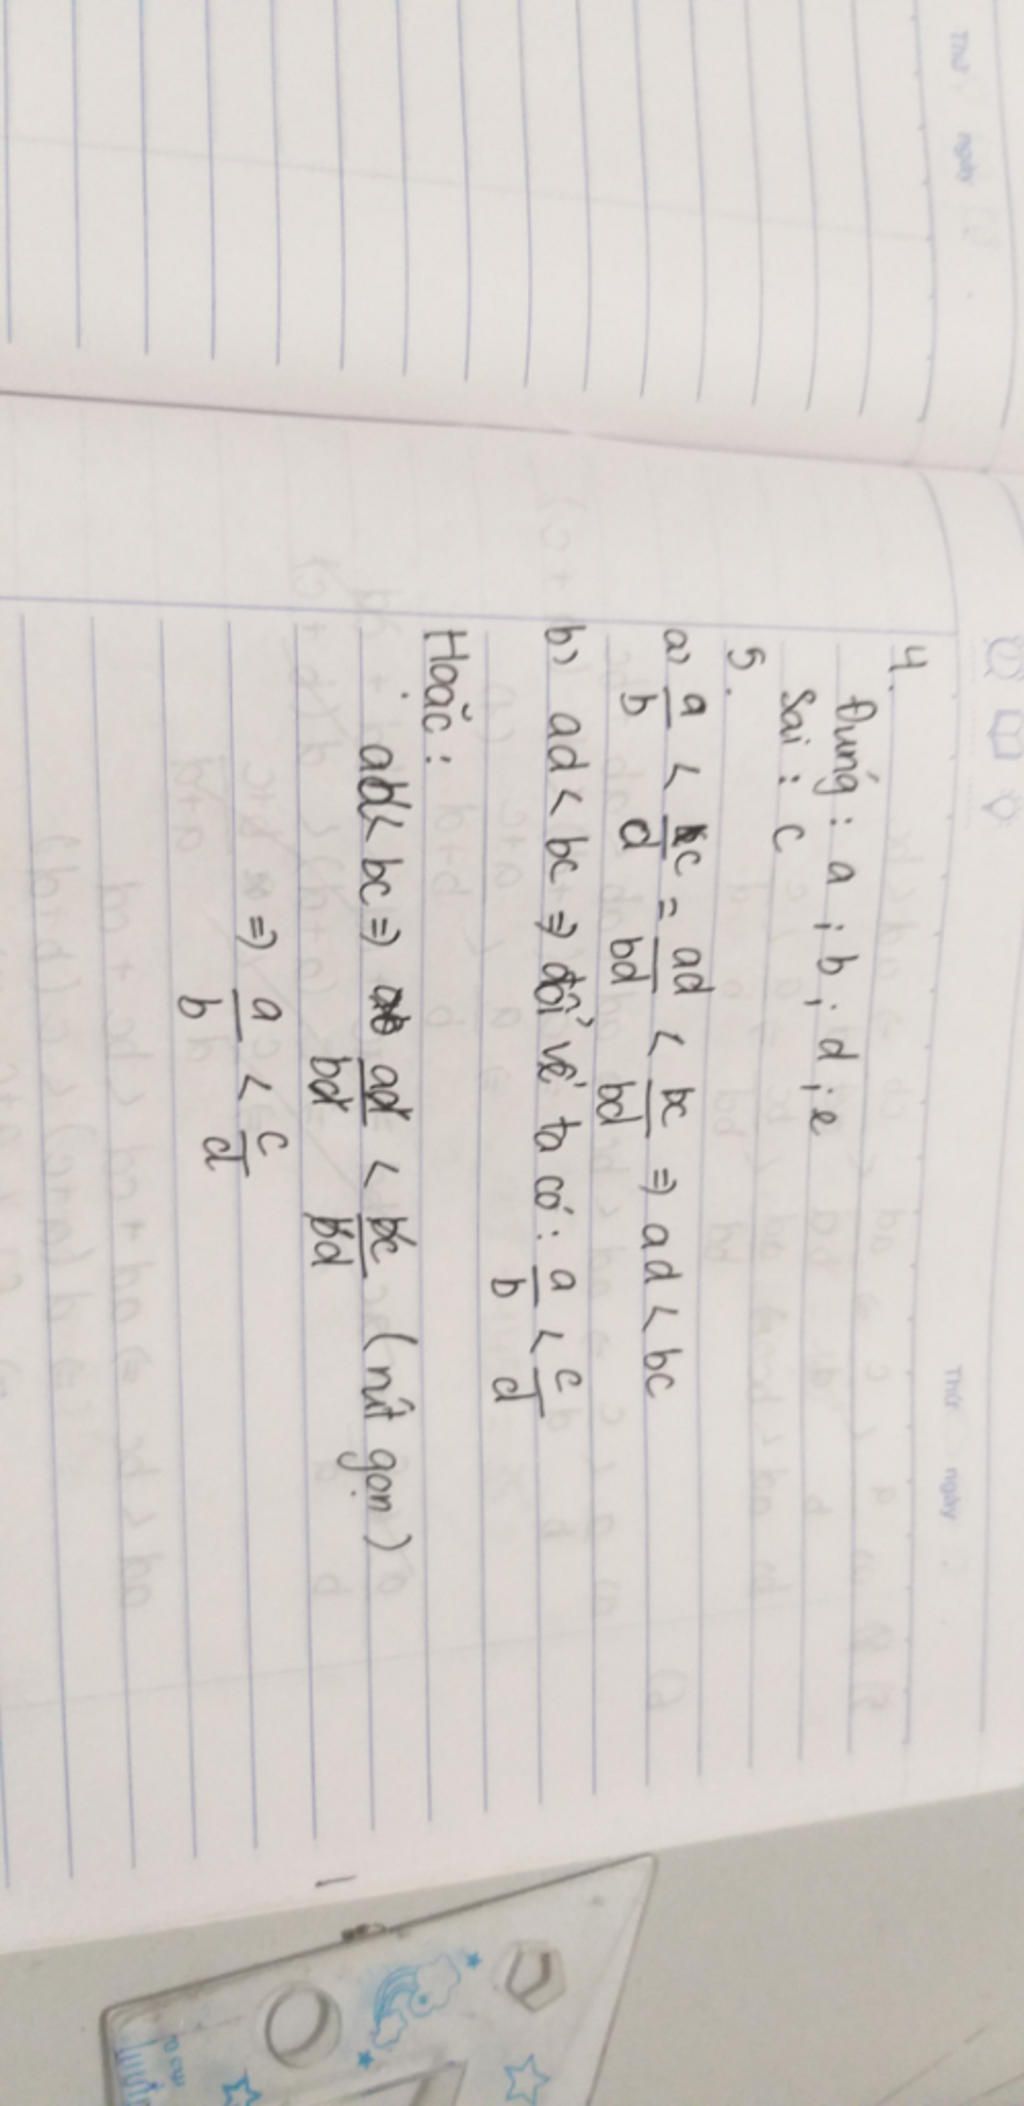 Thứ ngày
Thứ ngày
4.
Đúng : a ; b ; d ; e
Sai : c
5.
a) a/b < c/d = ad/bd < bc/bd => ad < bc
b) ad < bc => đổi vế ta có : a/b < c/d
Hoặc :
ad < bc => ad/bd < bc/bd (rút gọn)
=> a/b < c/d